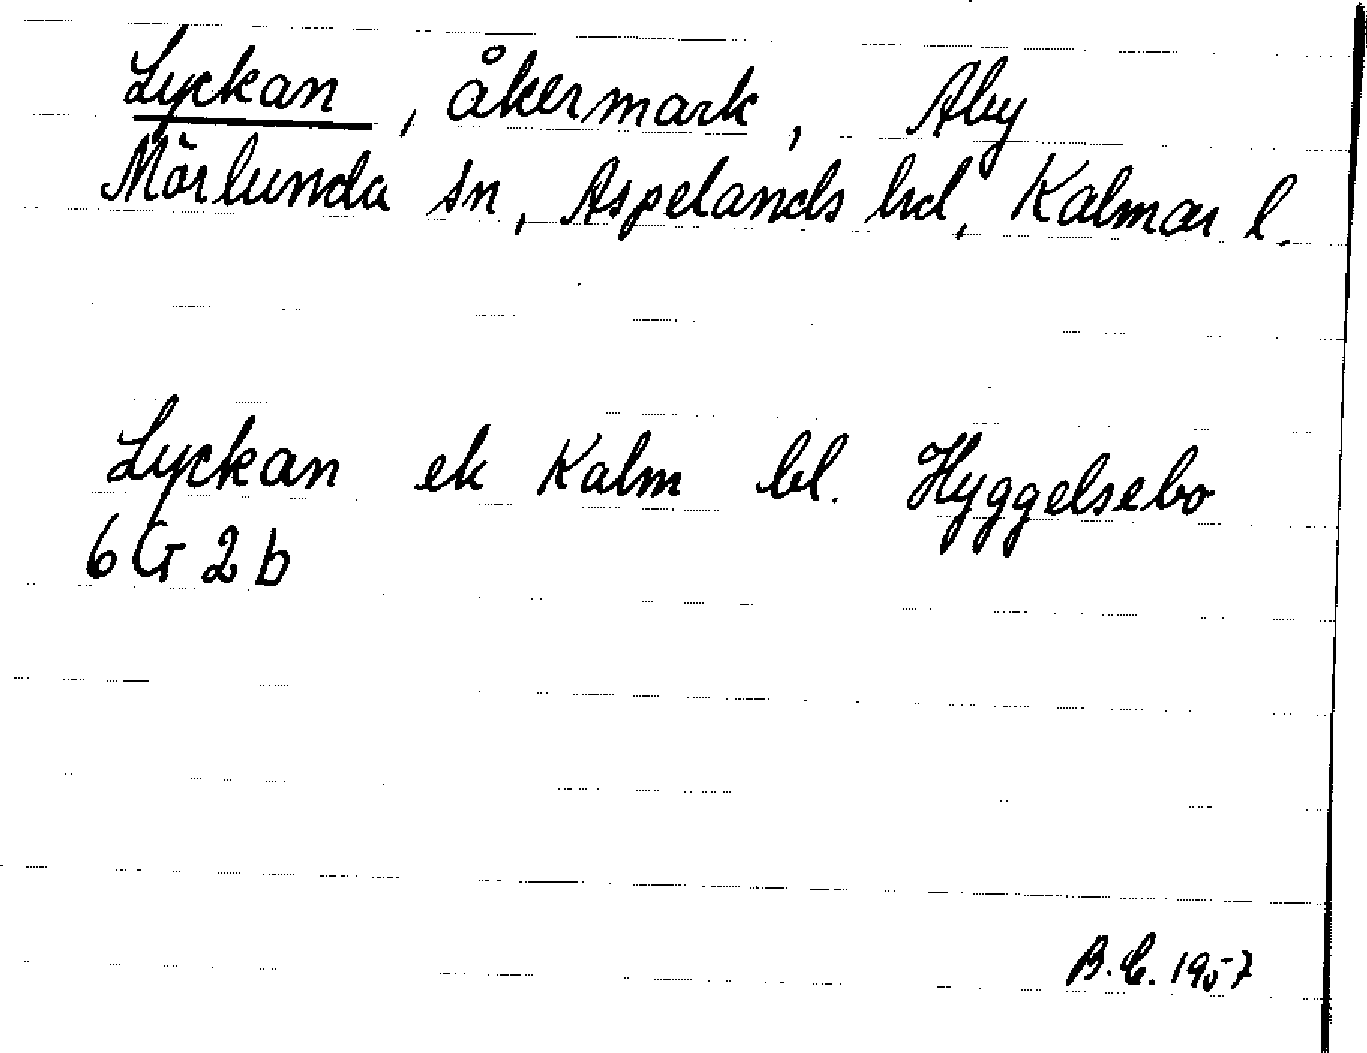 Lyckan, åkermark, Aby
Mörlunda sn, Aspelands hd, Kalmar l.
Lyckan ek Kalm bl. Hyggelsebo
6 G 2 b
B.E. 1957